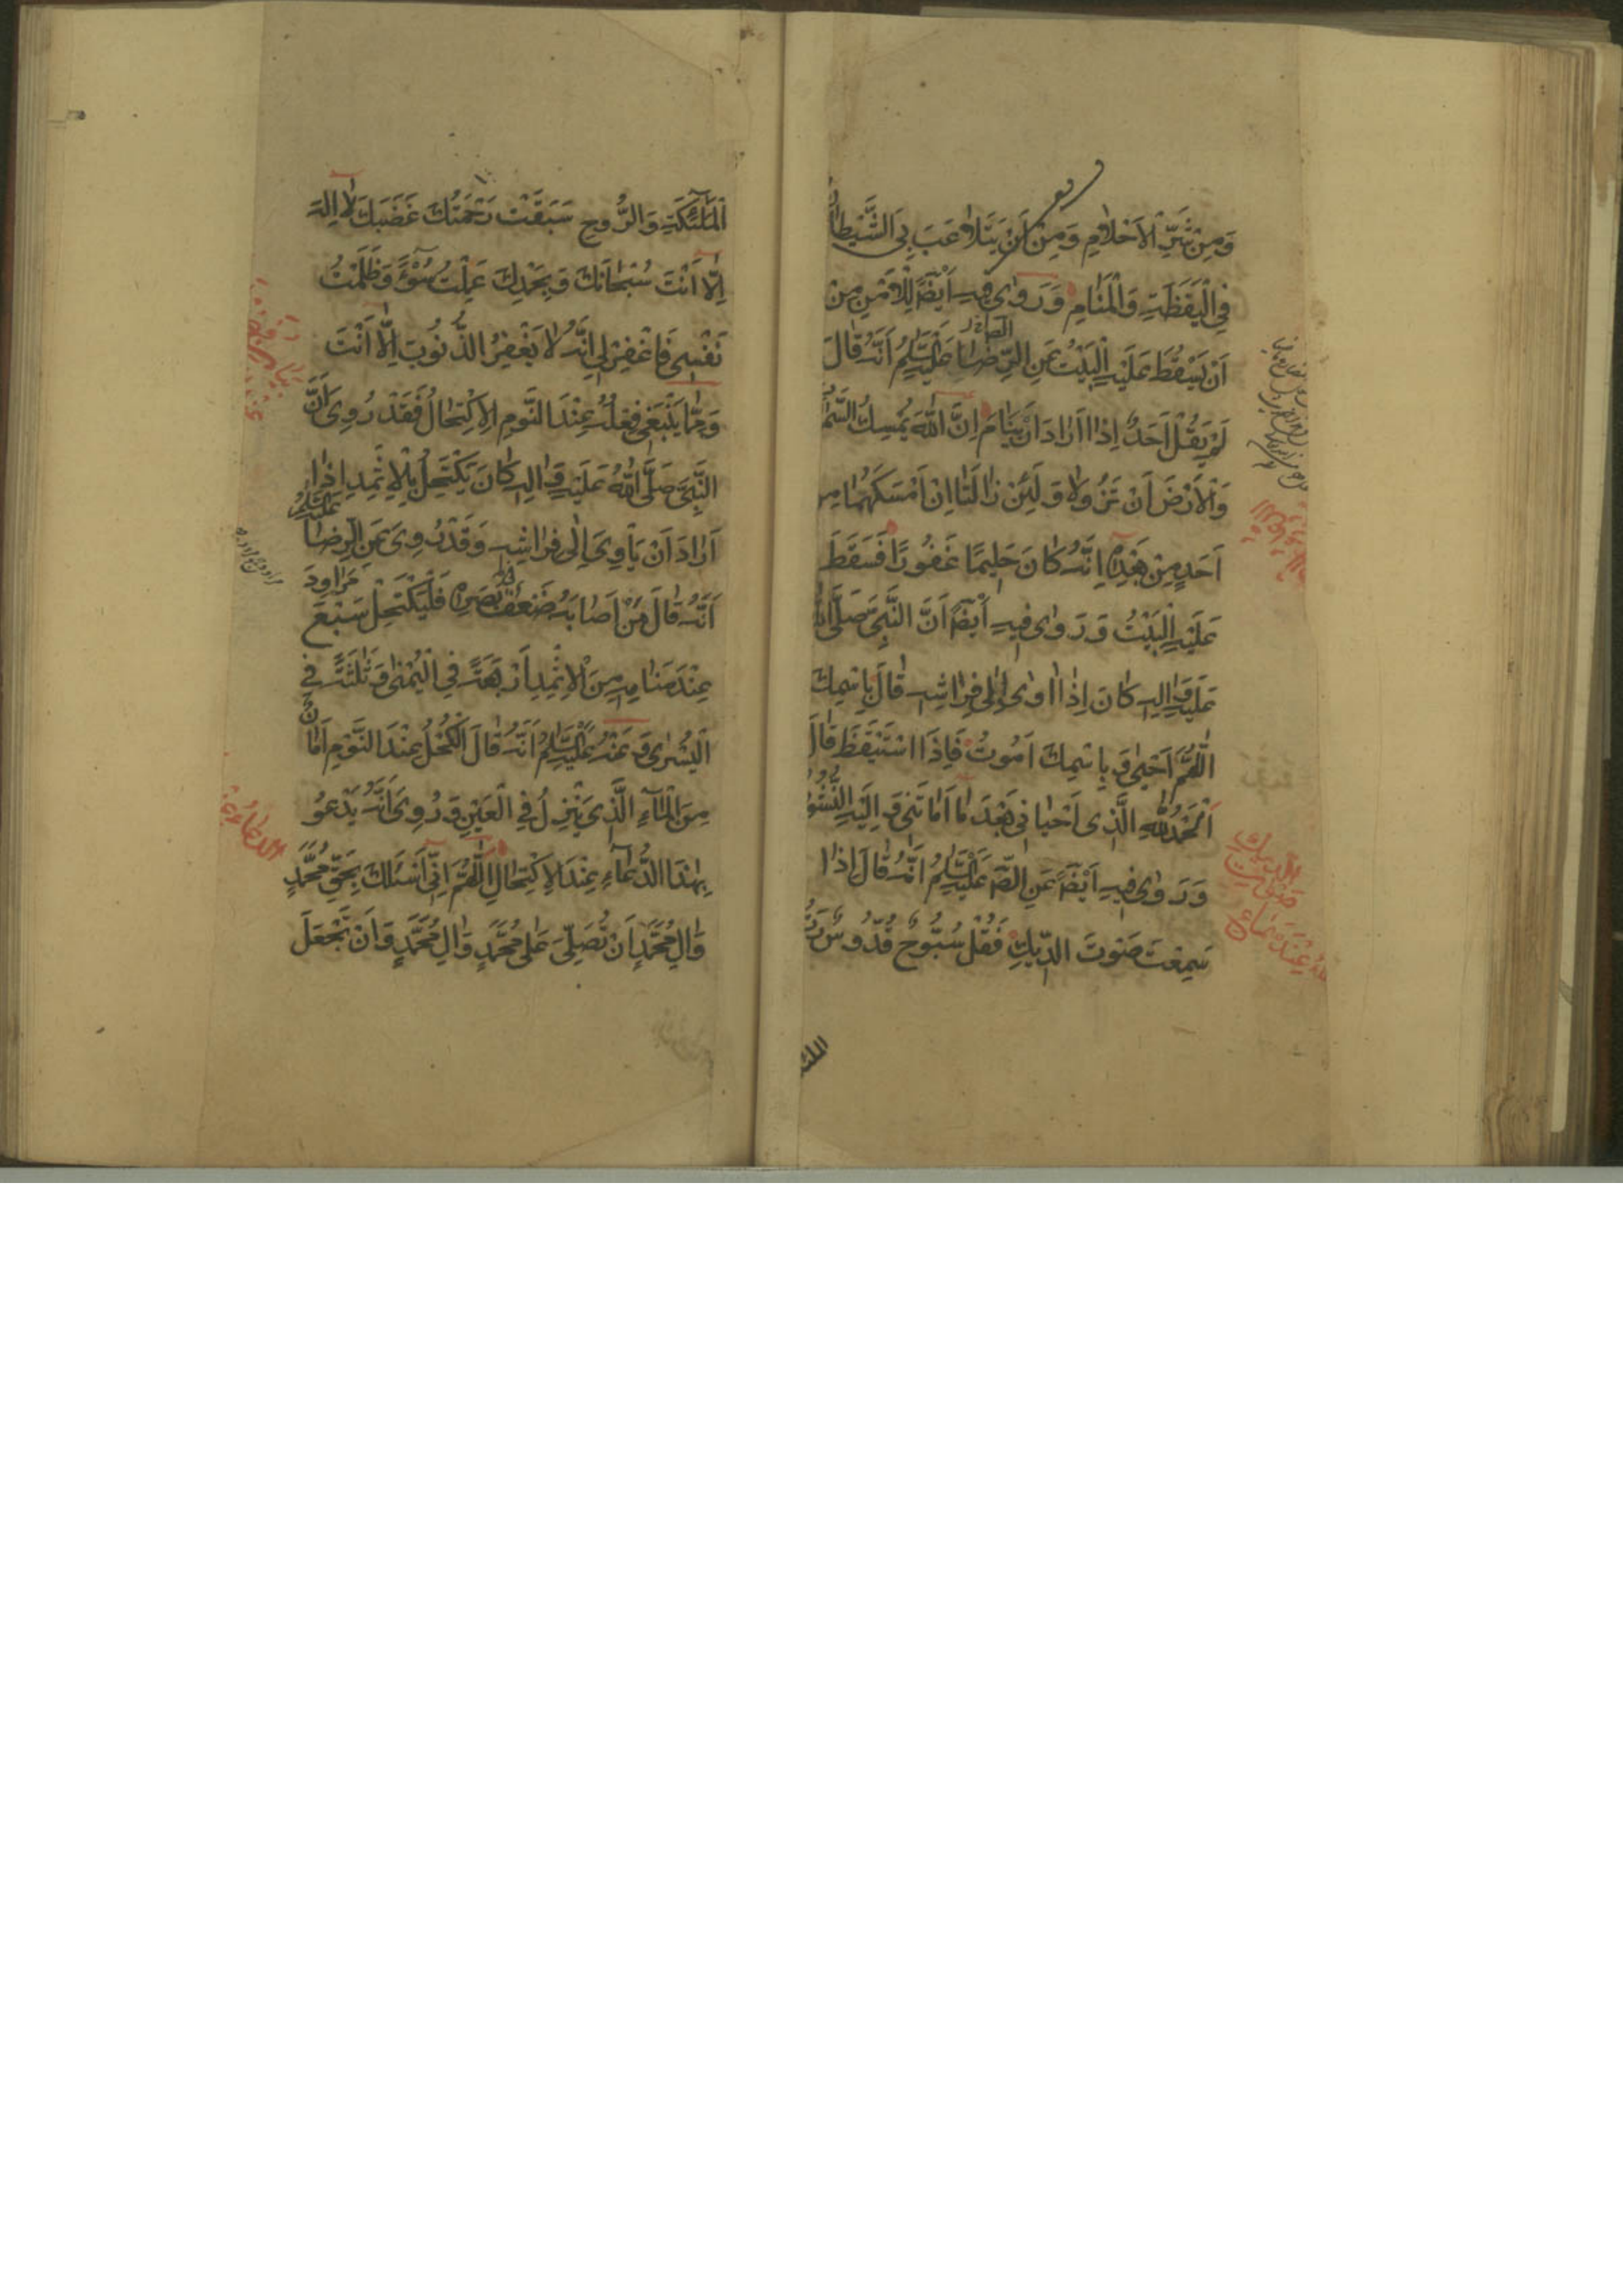 وَمِنْ شَرِّ الْاَحْلَامِ وَمِنْ اَنْ يَتَلَاعَبَ بِيَ الشَّيْطَانُ
فِي الْيَقَظَةِ وَالْمَنَامِ وَرَوٰى فِيهِ اَيْضًا لِلْاَمْنِ مِنْ
اَنْ يَسْقُطَ عَلَيْهِ الْبَيْتُ عَنِ الرِّضَا عَلَيْهِ السَّلَامُ اَنَّهُ قَالَ
لَمْ يَقُلْ اَحَدٌ اِذَا اَرَادَ اَنْ يَنَامَ اِنَّ اللّٰهَ يُمْسِكُ السَّمٰوَاتِ
وَالْاَرْضَ اَنْ تَزُولَا وَلَئِنْ زَالَتَا اِنْ اَمْسَكَهُمَا مِنْ
اَحَدٍ مِنْ بَعْدِهِ اِنَّهُ كَانَ حَلِيمًا غَفُورًا فَسَقَطَ
عَلَيْهِ الْبَيْتُ وَرَوٰى فِيهِ اَيْضًا اَنَّ النَّبِيَّ صَلَّى اللّٰهُ
عَلَيْهِ وَاٰلِهِ كَانَ اِذَا اَوٰى اِلٰى فِرَاشِهِ قَالَ بِاسْمِكَ
اللّٰهُمَّ اَحْيٰى وَبِاسْمِكَ اَمُوتُ فَاِذَا اسْتَيْقَظَ قَالَ
اَلْحَمْدُ لِلّٰهِ الَّذِي اَحْيَانِي بَعْدَ مَا اَمَاتَنِي وَاِلَيْهِ النُّشُورُ
وَرَوٰى فِيهِ اَيْضًا عَنِ الصَّ عَلَيْهِ السَّلَامُ اَنَّهُ قَالَ اِذَا
سَمِعْتَ صَوْتَ الدِّيكِ فَقُلْ سُبُّوحٌ قُدُّوسٌ رَبُّ
الملئ
اَلْمَلٰئِكَةِ وَالرُّوحِ سَبَقَتْ رَحْمَتُكَ غَضَبَكَ لَا اِلٰهَ
اِلَّا اَنْتَ سُبْحَانَكَ وَبِحَمْدِكَ عَمِلْتُ سُوْءً وَظَلَمْتُ
نَفْسِي فَاغْفِرْ لِي اِنَّهُ لَا يَغْفِرُ الذُّنُوبَ اِلَّا اَنْتَ
وَمِمَّا يَنْبَغِي فِعْلُهُ عِنْدَ النَّوْمِ الْاِكْتِحَالُ فَقَدْ رُوِيَ اَنَّ
النَّبِيَّ صَلَّى اللّٰهُ عَلَيْهِ وَاٰلِهِ كَانَ يَكْتَحِلُ بِالْاِثْمِدِ اِذَا
اَرَادَ اَنْ يَاْوِيَ اِلٰى فِرَاشِهِ وَقَدْ رُوِيَ عَنِ الرِّضَا عَلَيْهِ السَّلَامُ
اَنَّهُ قَالَ مَنْ اَصَابَهُ ضَعْفُ بَصَرِهِ فَلْيَكْتَحِلْ سَبْعَ مَرَاوِدَ
عِنْدَ مَنَامِهِ مِنَ الْاِثْمِدِ اَرْبَعَةً فِي الْيُمْنٰى وَثَلٰثَةً فِي
الْيُسْرٰى وَعَنْهُ عَلَيْهِ السَّلَامُ اَنَّهُ قَالَ الْكُحْلُ عِنْدَ النَّوْمِ اَمَانٌ
مِنَ الْمَاءِ الَّذِي يَنْزِلُ فِي الْعَيْنِ وَرُوِيَ اَنَّهُ يَدْعُو
بِهٰذَا الدُّعَاءِ عِنْدَ الْاِكْتِحَالِ اَللّٰهُمَّ اِنِّي اَسْئَلُكَ بِحَقِّ مُحَمَّدٍ
وَاٰلِ مُحَمَّدٍ اَنْ تُصَلِّيَ عَلٰى مُحَمَّدٍ وَاٰلِ مُحَمَّدٍ وَاَنْ تَجْعَلَ